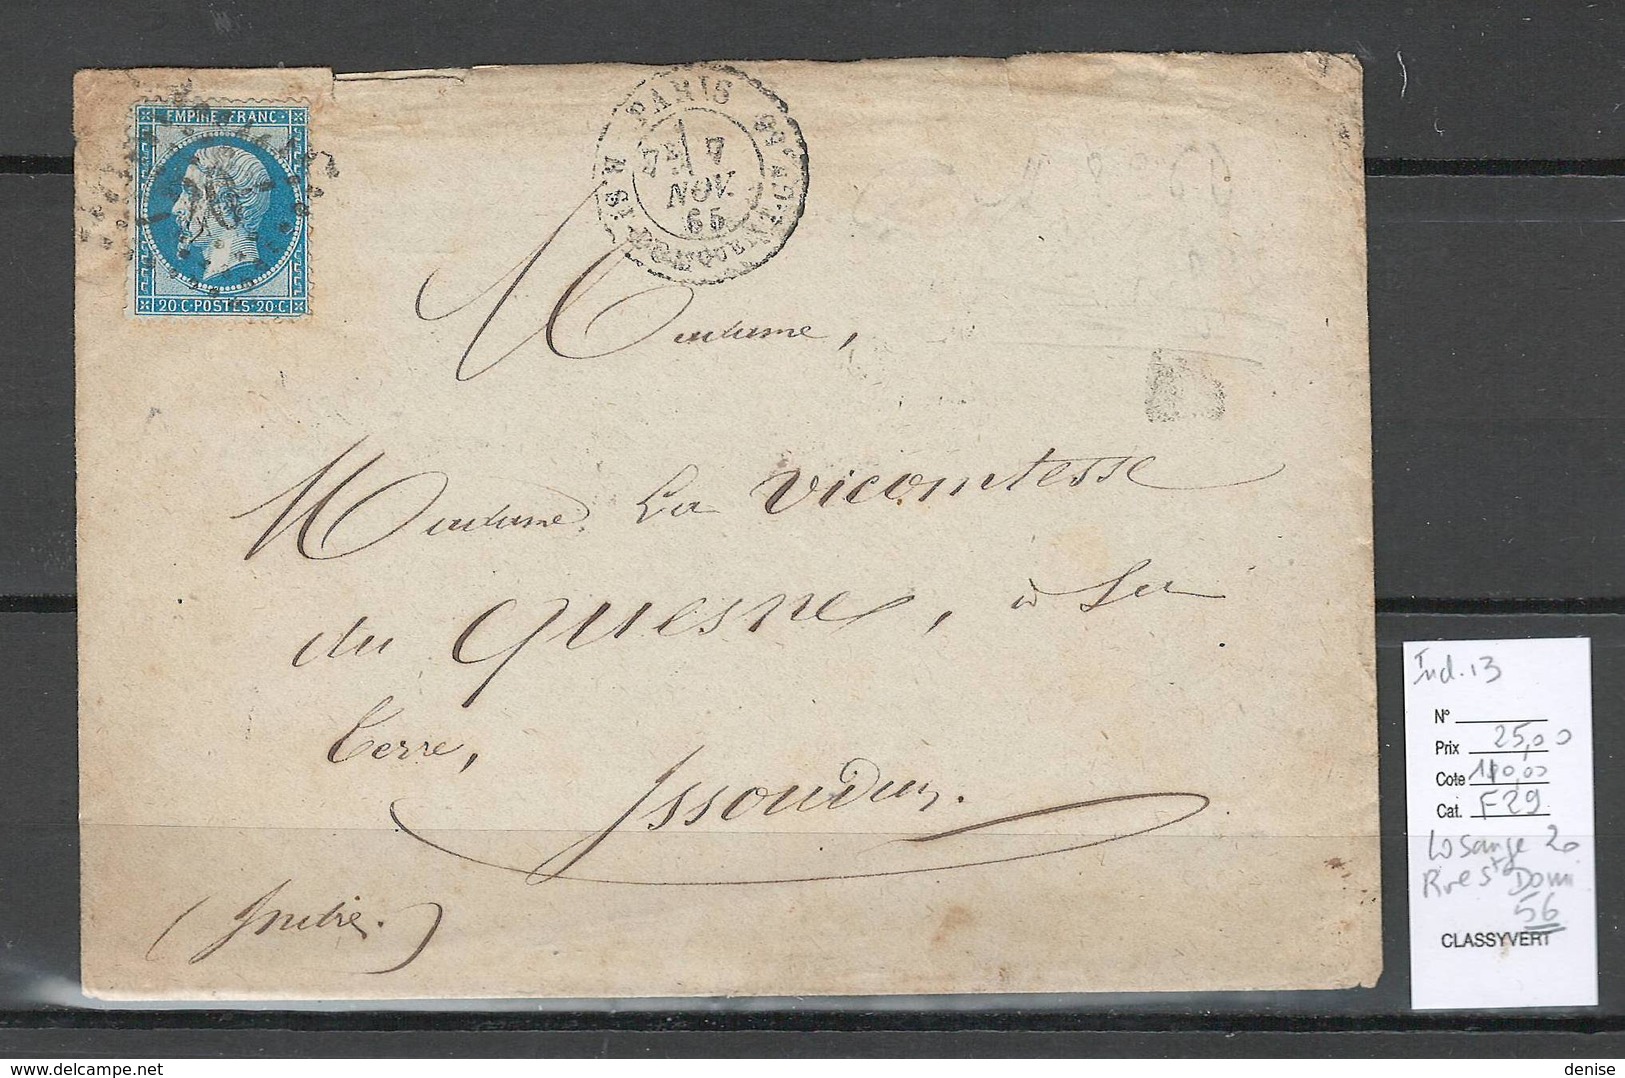 EMPIRE FRANC
20
20·C·POSTES·20·C
PARIS
7E 7
NOV.
65
Madame,
Madame La Vicomtesse
du Quesne, à sa
terre,
Issoudun.
(Indre.)
Ind. 13
N°
Prix 25,00
Cote 110,00
Cat. F29
Losange 20
R. de St Domi
56
CLASSYVERT
delcampe.net
denise